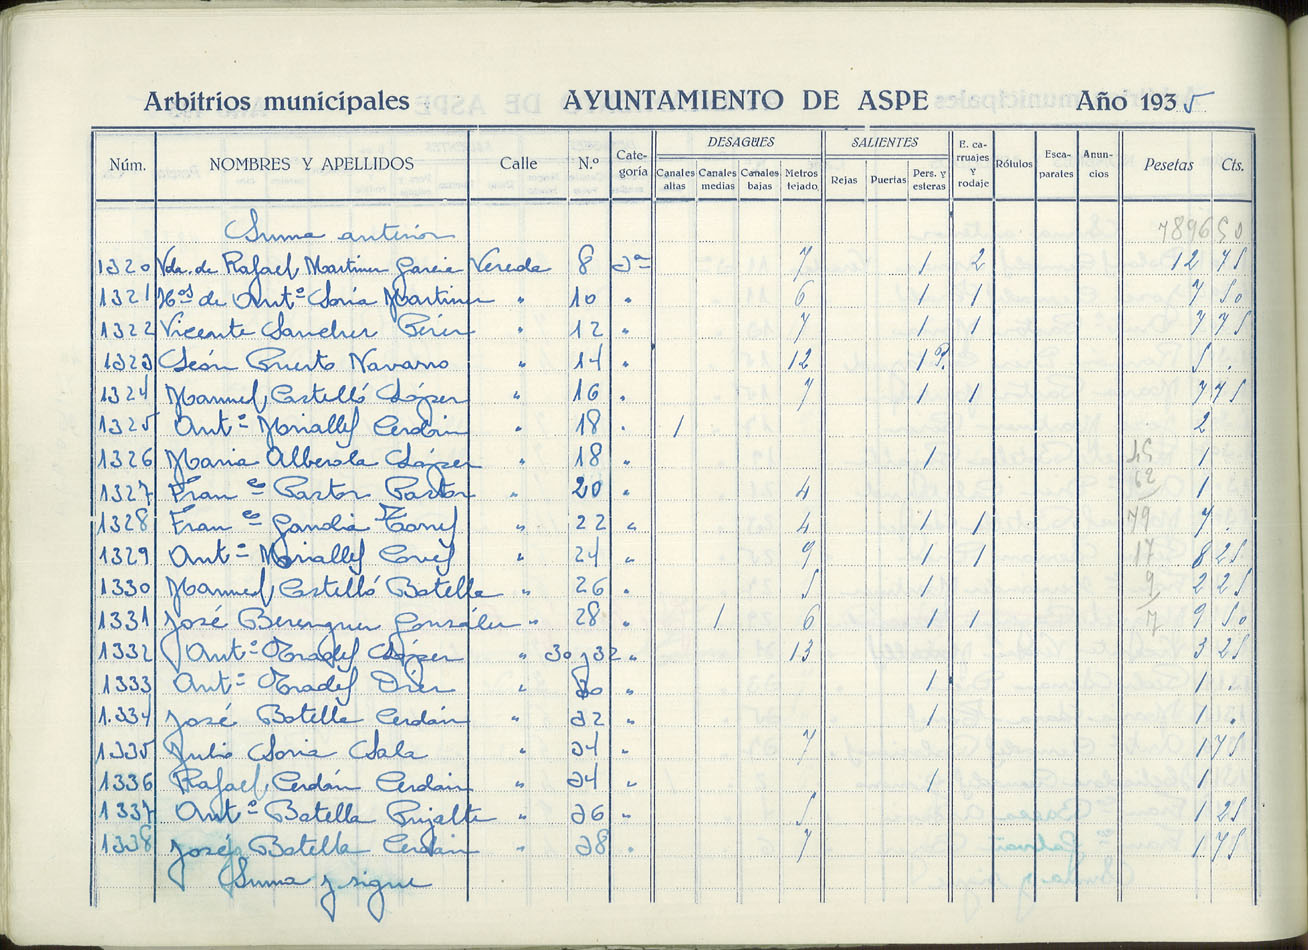 Arbitrios municipales AYUNTAMIENTO DE ASPE Año 1935
DESAGUES SALIENTES
Núm. NOMBRES Y APELLIDOS Calle N.º Cate-goría Canales altas Canales medias Canales bajas Metros tejado Rejas Puertas Pers. y esteras E. ca-rruajes y rodaje Rótulos Esca-parates Anun-cios Pesetas Cts.
Suma anterior 7896 50
1320 Vda. de Rafael Martinez Garcia Vereda 8 2ª 7 1 2 12 75
1321 Hos de Antº Soria Martinez " 10 " 6 1 1 7 50
1322 Vicente Sanchez Pérez " 12 " 7 1 1 7 75
1323 León Puerto Navarro " 14 " 12 1 P. 5 .
1324 Manuel Castelló López " 16 " 7 1 1 7 75
1325 Antº Mirallef Cerdán " 18 " 1 2
1326 Maria Alberola López " 18 " 1 45 1
1327 Franco Pastor Pastor " 20 " 4 62 1
1328 Franco Gandia " 22 " 4 1 1 79 7
1329 Antº Mirallef " 24 " 9 1 1 17 8 25
1330 Manuel Castelló Botella " 26 " 5 1 9 2 25
1331 José Berenguer González " 28 " 1 6 1 1 7 9 50
1332 Antº Pradef López " 30 y 32 " 13 3 25
1333 Antº Pradef Diez " 20 " 1 1 .
1.334 José Botella Cerdán " 22 " 1 1 .
1335 Julio Soria Sala " 24 " 7 1 75
1336 Rafael Cerdán Cerdán " 24 " 1 1
1337 Antº Botella Pujalte " 26 " 5 1 25
1338 José Botella Cerdán " 28 " 7 1 75
Suma y sigue